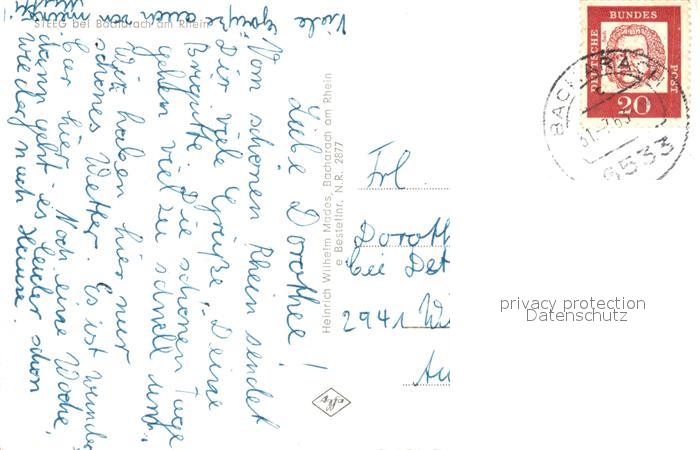 STEEG bei Bacharach am Rhein
Liebe Dorothee!
Vom schönen Rhein sendet
Dir viele Grüße, Deine
Brigitte. Die schönen Tage
gehen viel zu schnell um.
Wir haben hier nur
schönes Wetter. Es ist wunder
bar hier. Noch eine Woche,
dann geht es leider schon
wieder nach Hause.
Viele Grüße auch von
Heinrich Wilhelm Mades, Bacharach am Rhein
e Bestellnr. N.R. 2877
DEUTSCHE BUNDES POST
20
BACHARA
31.7.63
6533
Frl.
Doroth
bei Det
2941 Wi
Au
privacy protection
Datenschutz